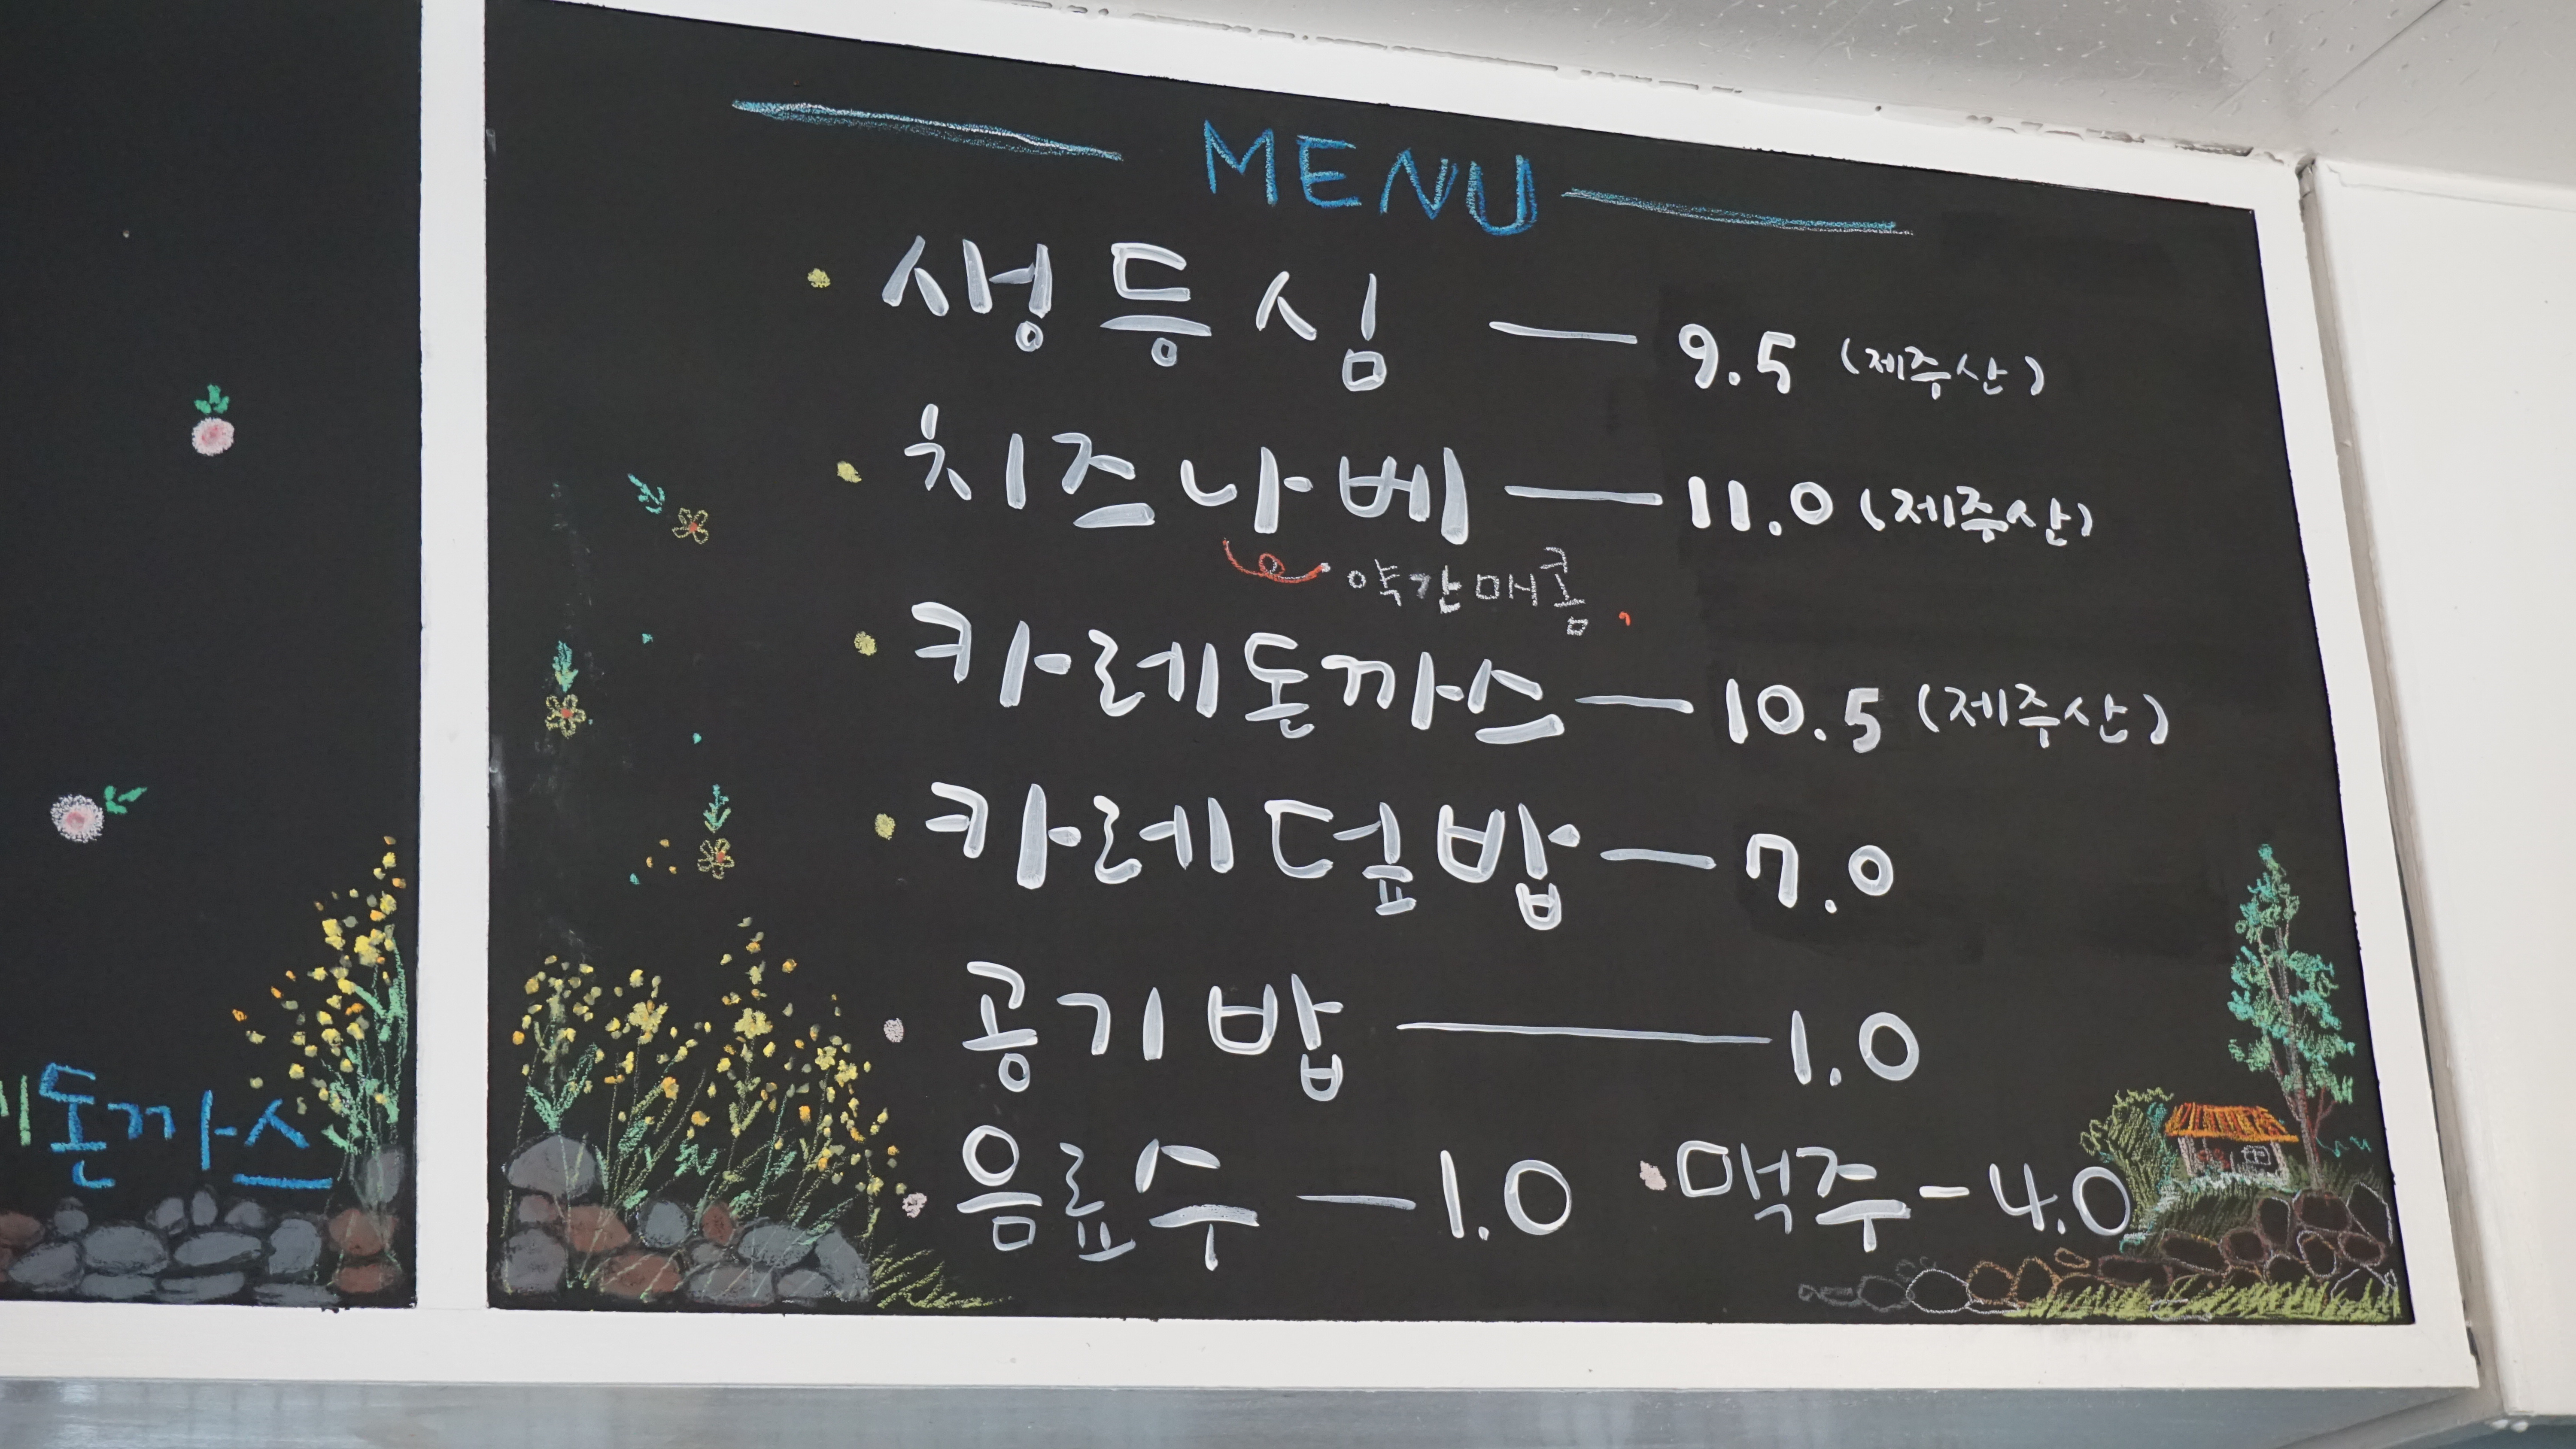 MENU
생등심 — 9.5 (제주산)
치즈나베 — 11.0 (제주산)
약간매콤
카레돈까스 — 10.5 (제주산)
카레덮밥 — 7.0
공기밥 — 1.0
음료수 — 1.0 맥주 - 4.0
돈까스